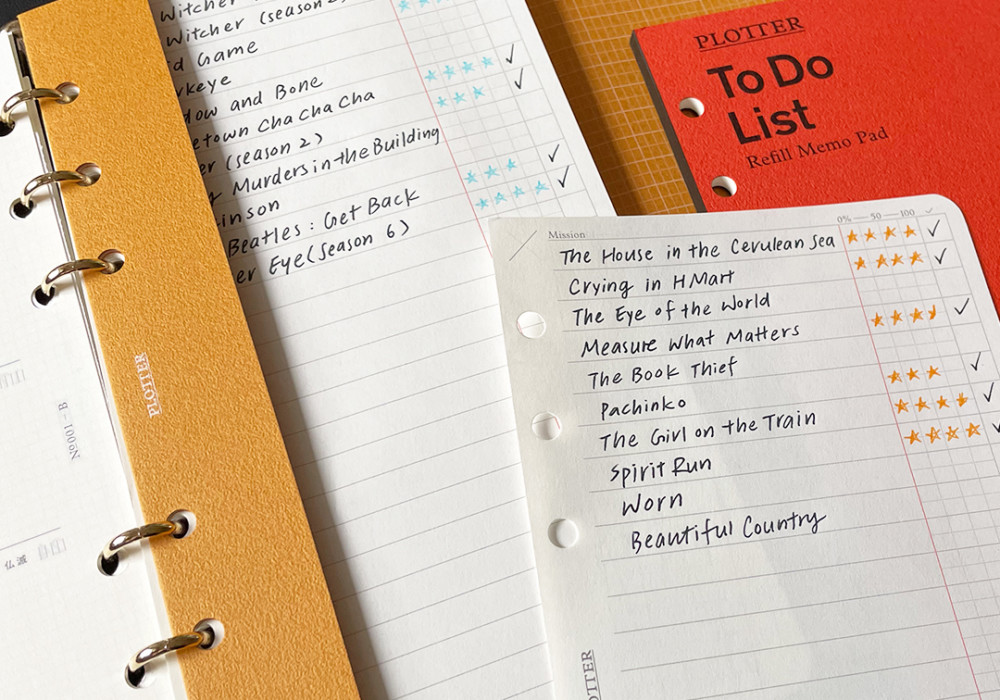 Witcher
Witcher (season 2)
Game
and Bone
Cha Cha
(season 2)
Murders in the Building
Beatles: Get Back
Eye (Season 6)
PLOTTER
No001-B
仏滅
PLOTTER
To Do
List
Refill Memo Pad
Mission
0% — 50 — 100
The House in the Cerulean Sea
Crying in H Mart
The Eye of the World
Measure What Matters
The Book Thief
Pachinko
The Girl on the Train
Spirit Run
Worn
Beautiful Country